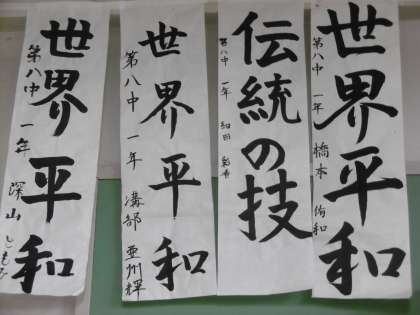 世界平和
第八中 一年 橋本 侑和
伝統の技
第八中 一年 和田
世界平和
第八中 一年 溝部 亜州輝
世界平和
第八中 一年 深山